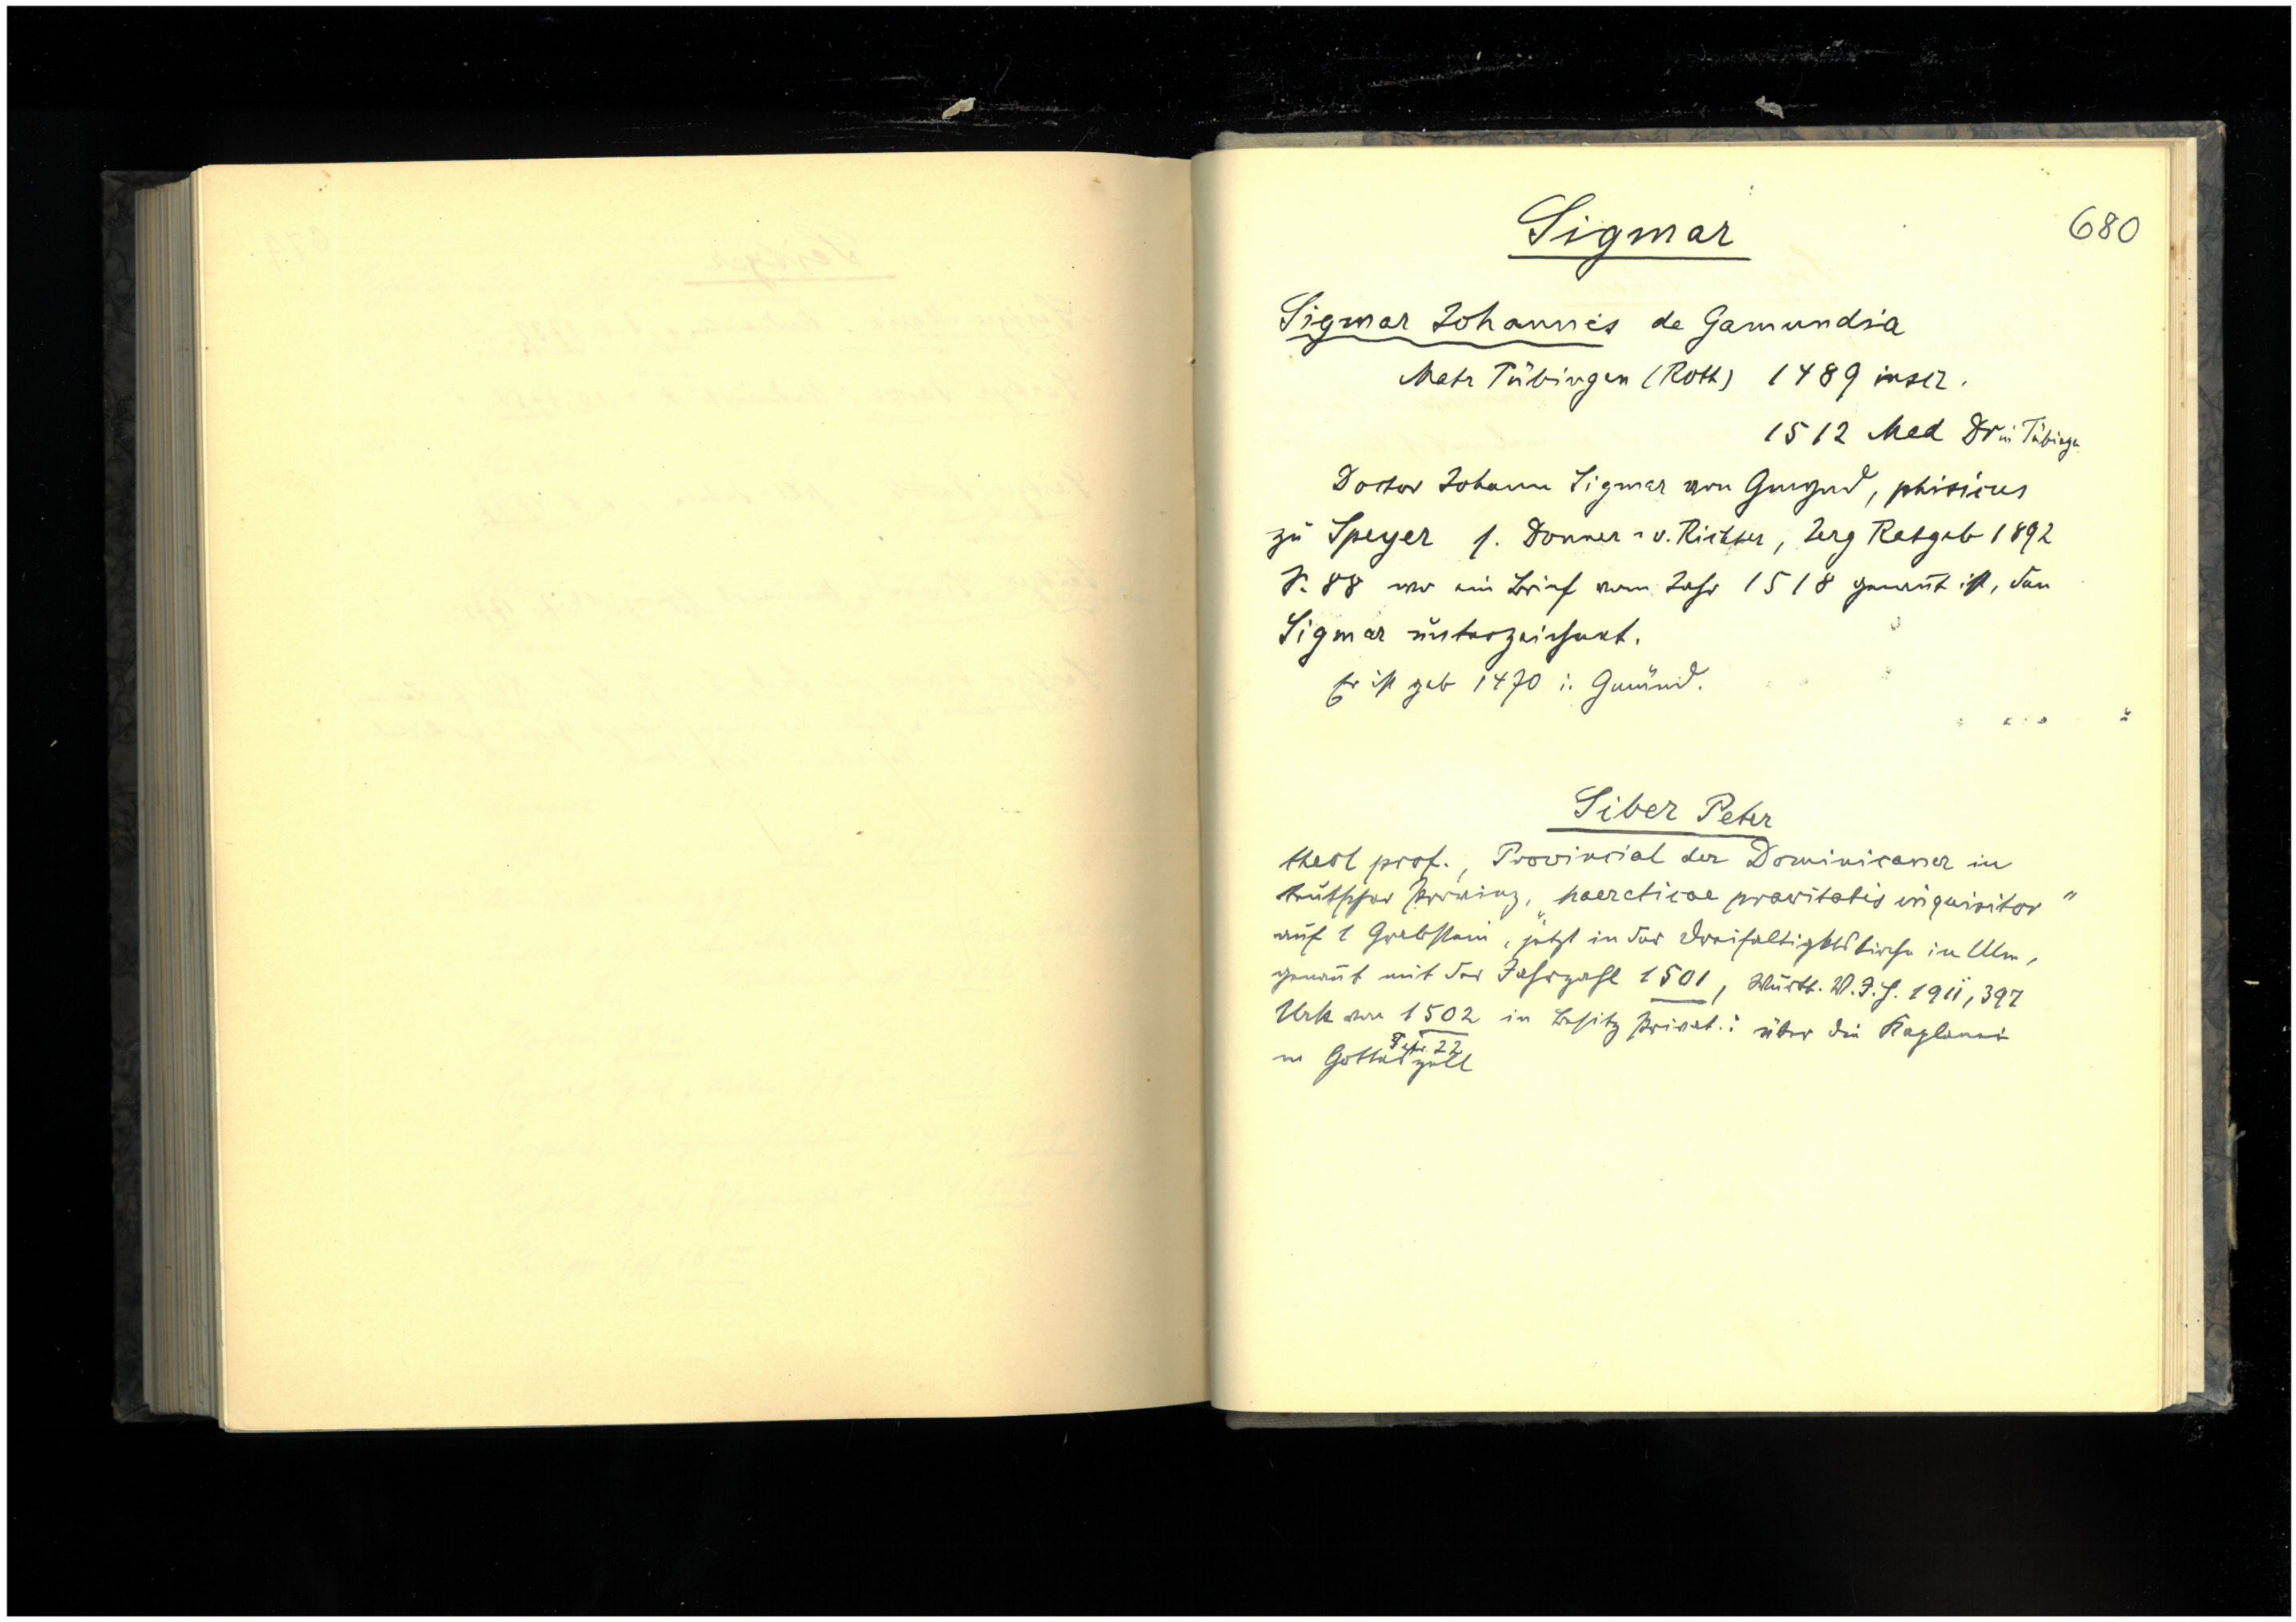 680
Sigmar
Sigmar Johannes de Gamundia
Matr Tübingen (Roth) 1489 inscr.
1512 Med Dr in Tübingen
Doctor Johann Sigmar von Gmynd, phisicus
zu Speyer s. Donner-v. Richter, Jerg Ratgeb 1892
S. 88 wo ein Brief vom Jahr 1518 genannt ist, den
Sigmar unterzeichnet.
Er ist geb 1470 i. Gmünd.
Siber Peter
theol prof., Provincial der Dominicaner in
teutscher Provinz, „haereticae pravitatis inquisitor"
auf 1 Grabstein, jetzt in der Dreifaltigktskirche in Ulm,
genannt mit der Jahrzahl 1501, Württ. V.J.H. 1911, 397
Urk von 1502 in Besitz Privat.: über die Kaplanei
22
in Gotteszell